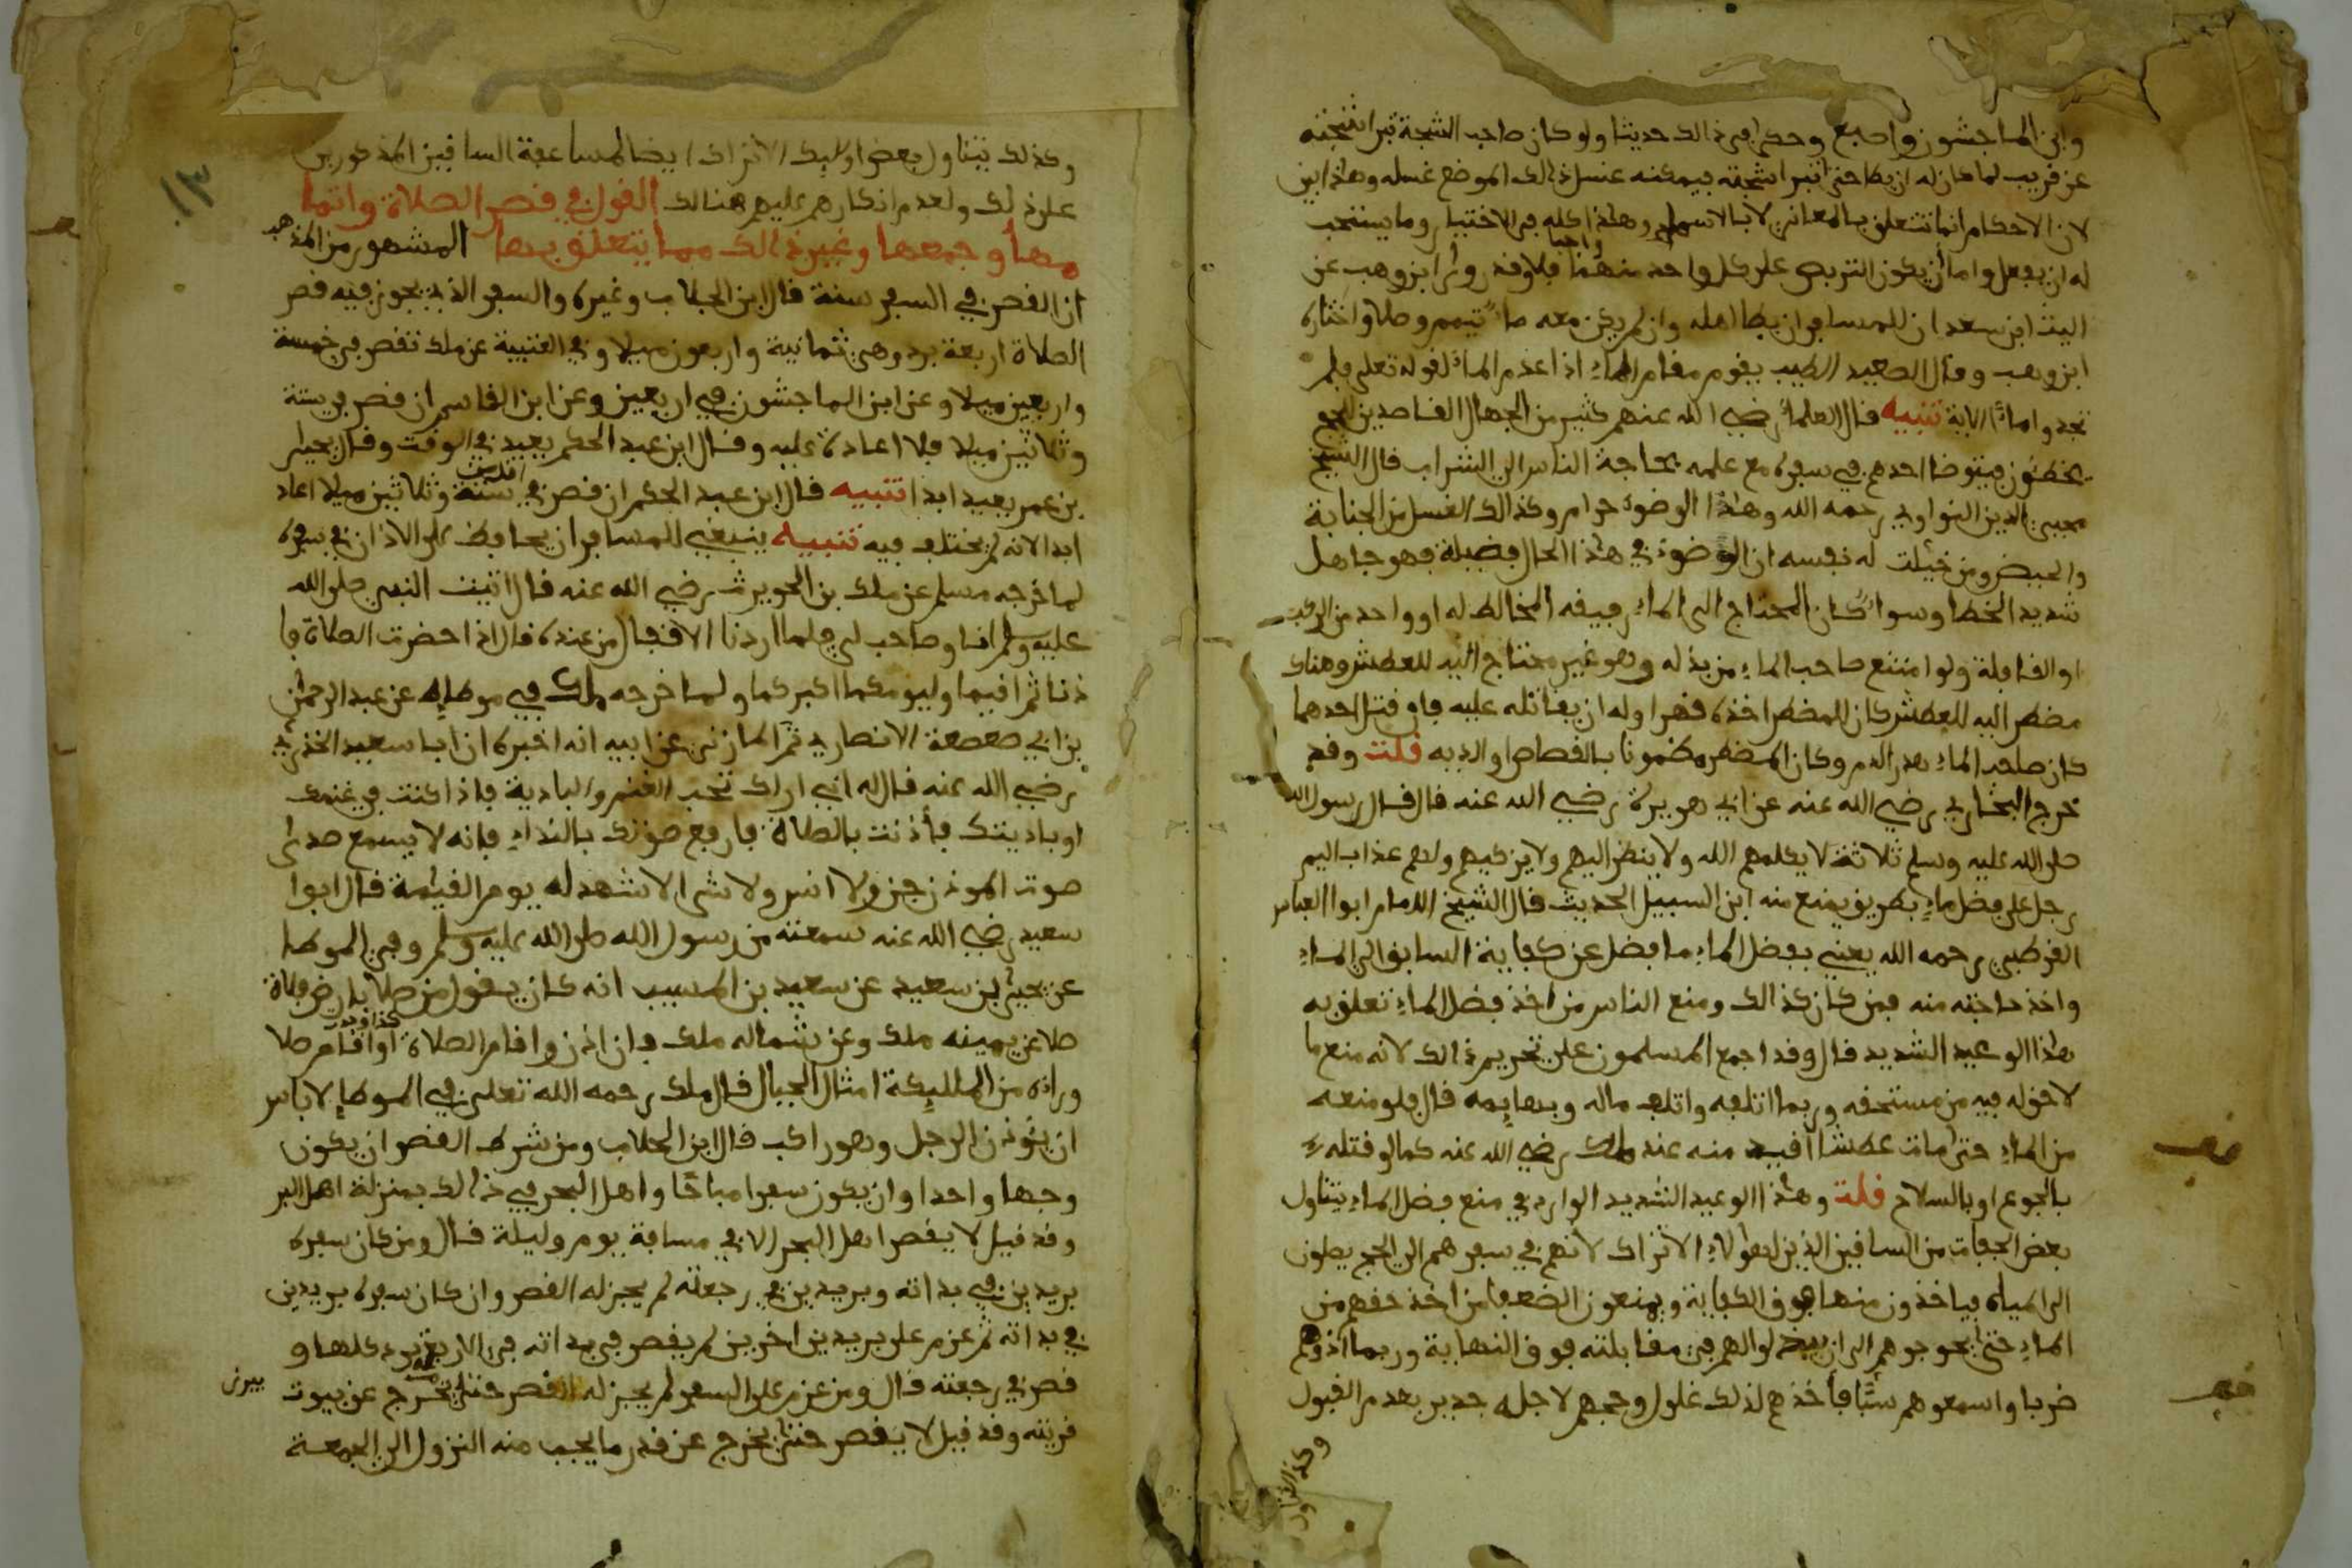 وابن الماجشون واصبغ وحكا في ذالك حديثا ولو كان صاحب الشجة تبرا شجته
عن قريب لما كان له ان يطا حتى تبرا شجته فيمكنه غسل ذالك الموضع غسله وهذا ابين
لان الاحكام انما تتعلق بالمعاني لا بالاسماء وهذا كله في الاختيار وما يستحب
له ان يفعل واما ان يكون التربص على كل واحد منهما واجبا فلا وقد روى ابن وهب عن
الليث ابن سعد ان للمسافر ان يطا اهله وان لم يكن معه ماء تيمم وصلا واختاره
ابن وهب وقال الصعيد الطيب يقوم مقام الماء اذا عدم الماء لقوله تعلى فلم
تجدوا ماء الاية تنبيه قال العلماء رضي الله عنهم كثير من الجهال القاصدين للحج
يخطئون فيتوضا احدهم في سفره مع علمه بحاجة الناس الى الشراب قال الشيخ
محيي الدين النواوي رحمه الله وهذا الوضوء حرام وكذالك الغسل من الجنابة
والحيض ومن خيلت له نفسه ان الوضوء في هذا الحال فضيلة فهو جاهل
شديد الخطا وسواء كان المحتاج الى الماء رفيقه المخالط له او واحد من الركب
او القافلة ولو امتنع صاحب الماء من بذله وهو غير محتاج اليه للعطش وهناك
مضطر اليه للعطش كان للمضطر اخذه قهرا وله ان يقاتله عليه فان قتل احدهما
كان صاحب الماء هدر الدم وكان المضطر مضمونا بالقصاص او الدية قلت وقد
خرج البخاري رضي الله عنه عن ابي هريرة رضي الله عنه قال قال رسول الله
صلى الله عليه وسلم ثلاثة لا يكلمهم الله ولا ينظر اليهم ولا يزكيهم ولهم عذاب اليم
رجل على فضل ماء بطريق يمنع منه ابن السبيل الحديث قال الشيخ الامام ابوا العباس
القرطبي رحمه الله يعني بفضل الماء ما فضل عن كفاية السابق الى الماء
واخذ حاجته منه فمن كان كذالك ومنع الناس من اخذ فضل الماء تعلق به
هذا الوعيد الشديد قال وقد اجمع المسلمون على تحريم ذالك لانه منع ما
لا حق له فيه من مستحقه وربما اتلفه واتلف ماله وبهايمه قال فلو منعه
من الماء حتى مات عطشا اقيد منه عند ملك رضي الله عنه كما لو قتله
بالجوع او بالسلاح قلت وهذا الوعيد الشديد الوارد في منع فضل الماء يتناول
بعض الجفات من السافين الذين لهؤلاء الاتراك لانهم في سفرهم الى الحج يصلون
الى المياه فياخذون منها فوق الكفاية ويمنعون الضعفا من اخذ حقهم من
الماء حتى يحوجوهم الى ان يبذلوا لهم في مقابلته فوق النهاية وربما اذوهم
ضربا واسمعوهم سبا فأخذهم لذلك غلول وحجهم لاجله جدير بعدم القبول
وكذلك يتناول
١٣
وكذلك يتناول بعض اوليك الاتراك ايضا لمساعفة السافين المذكورين
على ذلك ولعدم انكارهم عليهم هنالك القول في قصر الصلاة واتما
مها وجمعها وغير ذالك مما يتعلق بها المشهور من المذهب
ان القصر في السفر سنة قال ابن الجلاب وغيره والسفر الذي يجوز فيه قصر
الصلاة اربعة برد وهي ثمانية واربعون ميلا وفي العتبية عن ملك تقصر في خمسة
واربعين ميلا وعن ابن الماجشون في اربعين وعن ابن القاسم ان قصر في ستة
وثلاثين ميلا فلا اعادة عليه وقال ابن عبد الحكم يعيد في الوقت وقال يحيى
بن عمر يعيد ابدا تنبيه قال ابن عبد الحكم ان قصر في اقل من ستة وثلاثين ميلا اعاد
ابدا لانه لم يختلف فيه تنبيه ينبغي للمسافر ان يحافظ على الاذان في سفره
لما خرجه مسلم عن ملك بن الحويرث رضي الله عنه قال اتيت النبي صلى الله
عليه وسلم انا وصاحب لي فلما اردنا الاقفال من عنده قال اذا حضرت الصلاة فا
ذنا ثم اقيما وليؤمكما اكبركما ولما خرجه ملك في موطإه عن عبد الرحمن
بن ابي صعصعة الانصاري ثم المازني عن ابيه انه اخبره ان ابا سعيد الخذري
رضي الله عنه قال له اني اراك تحب الغنم والبادية فاذا كنت في غنمك
او باديتك فأذنت بالصلاة فارفع صوتك بالنداء فانه لا يسمع صدى
صوت الموذن جن ولا انس ولا شي الا شهد له يوم القيمة قال ابوا
سعيد رضي الله عنه سمعته من رسول الله صلى الله عليه وسلم وفي الموطا
عن يحيى بن سعيد عن سعيد بن المسيب انه كان يقول من صلا بارض فلاة
صلا عن يمينه ملك وعن شماله ملك فان اذن واقام الصلاة او اقام صلا
وراءه من المليكة امثال الجبال قال ملك رحمه الله تعلى في الموطإ لا باس
ان يؤذن الرجل وهو راكب قال ابن الجلاب ومن شرط القصر ان يكون
وجها واحدا وان يكون سفرا مباحا واهل البحر في ذالك بمنزلة اهل البر
وقد قيل لا يقصر اهل البحر الا في مسافة يوم وليلة قال ومن كان سفره
بريدين في بداته وبريدين في رجعته لم يجز له القصر وان كان سفره بريدين
في بداته ثم عزم على بريدين اخرين لم يقصر في بداته في الاربعة برد كلها و
قصر في رجعته قال ومن عزم على السفر لم يجز له القصر حتى يخرج عن بيوت
قريته وقد قيل لا يقصر حتى يخرج عن قدر ما يجب منه النزول الى الجمعة